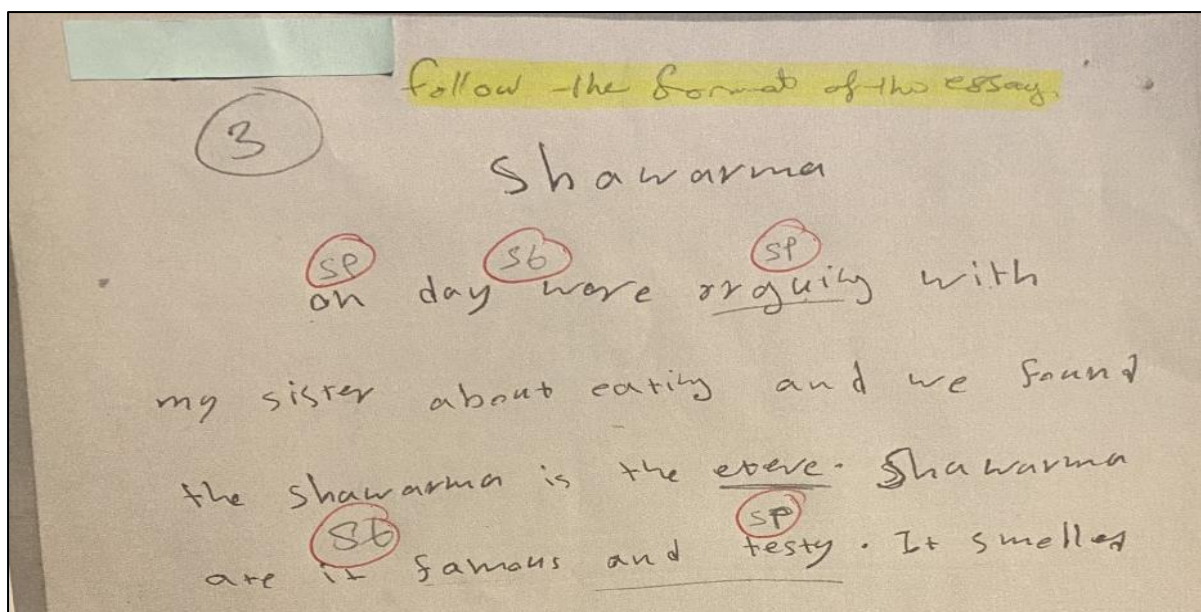 follow the format of the essay.
3
Shawarma
sp St sp
on day were rrguing with
my sister about eating and we found
the shawarma is the eteve. Shawarma
St sp
are it famous and testy. It smelled